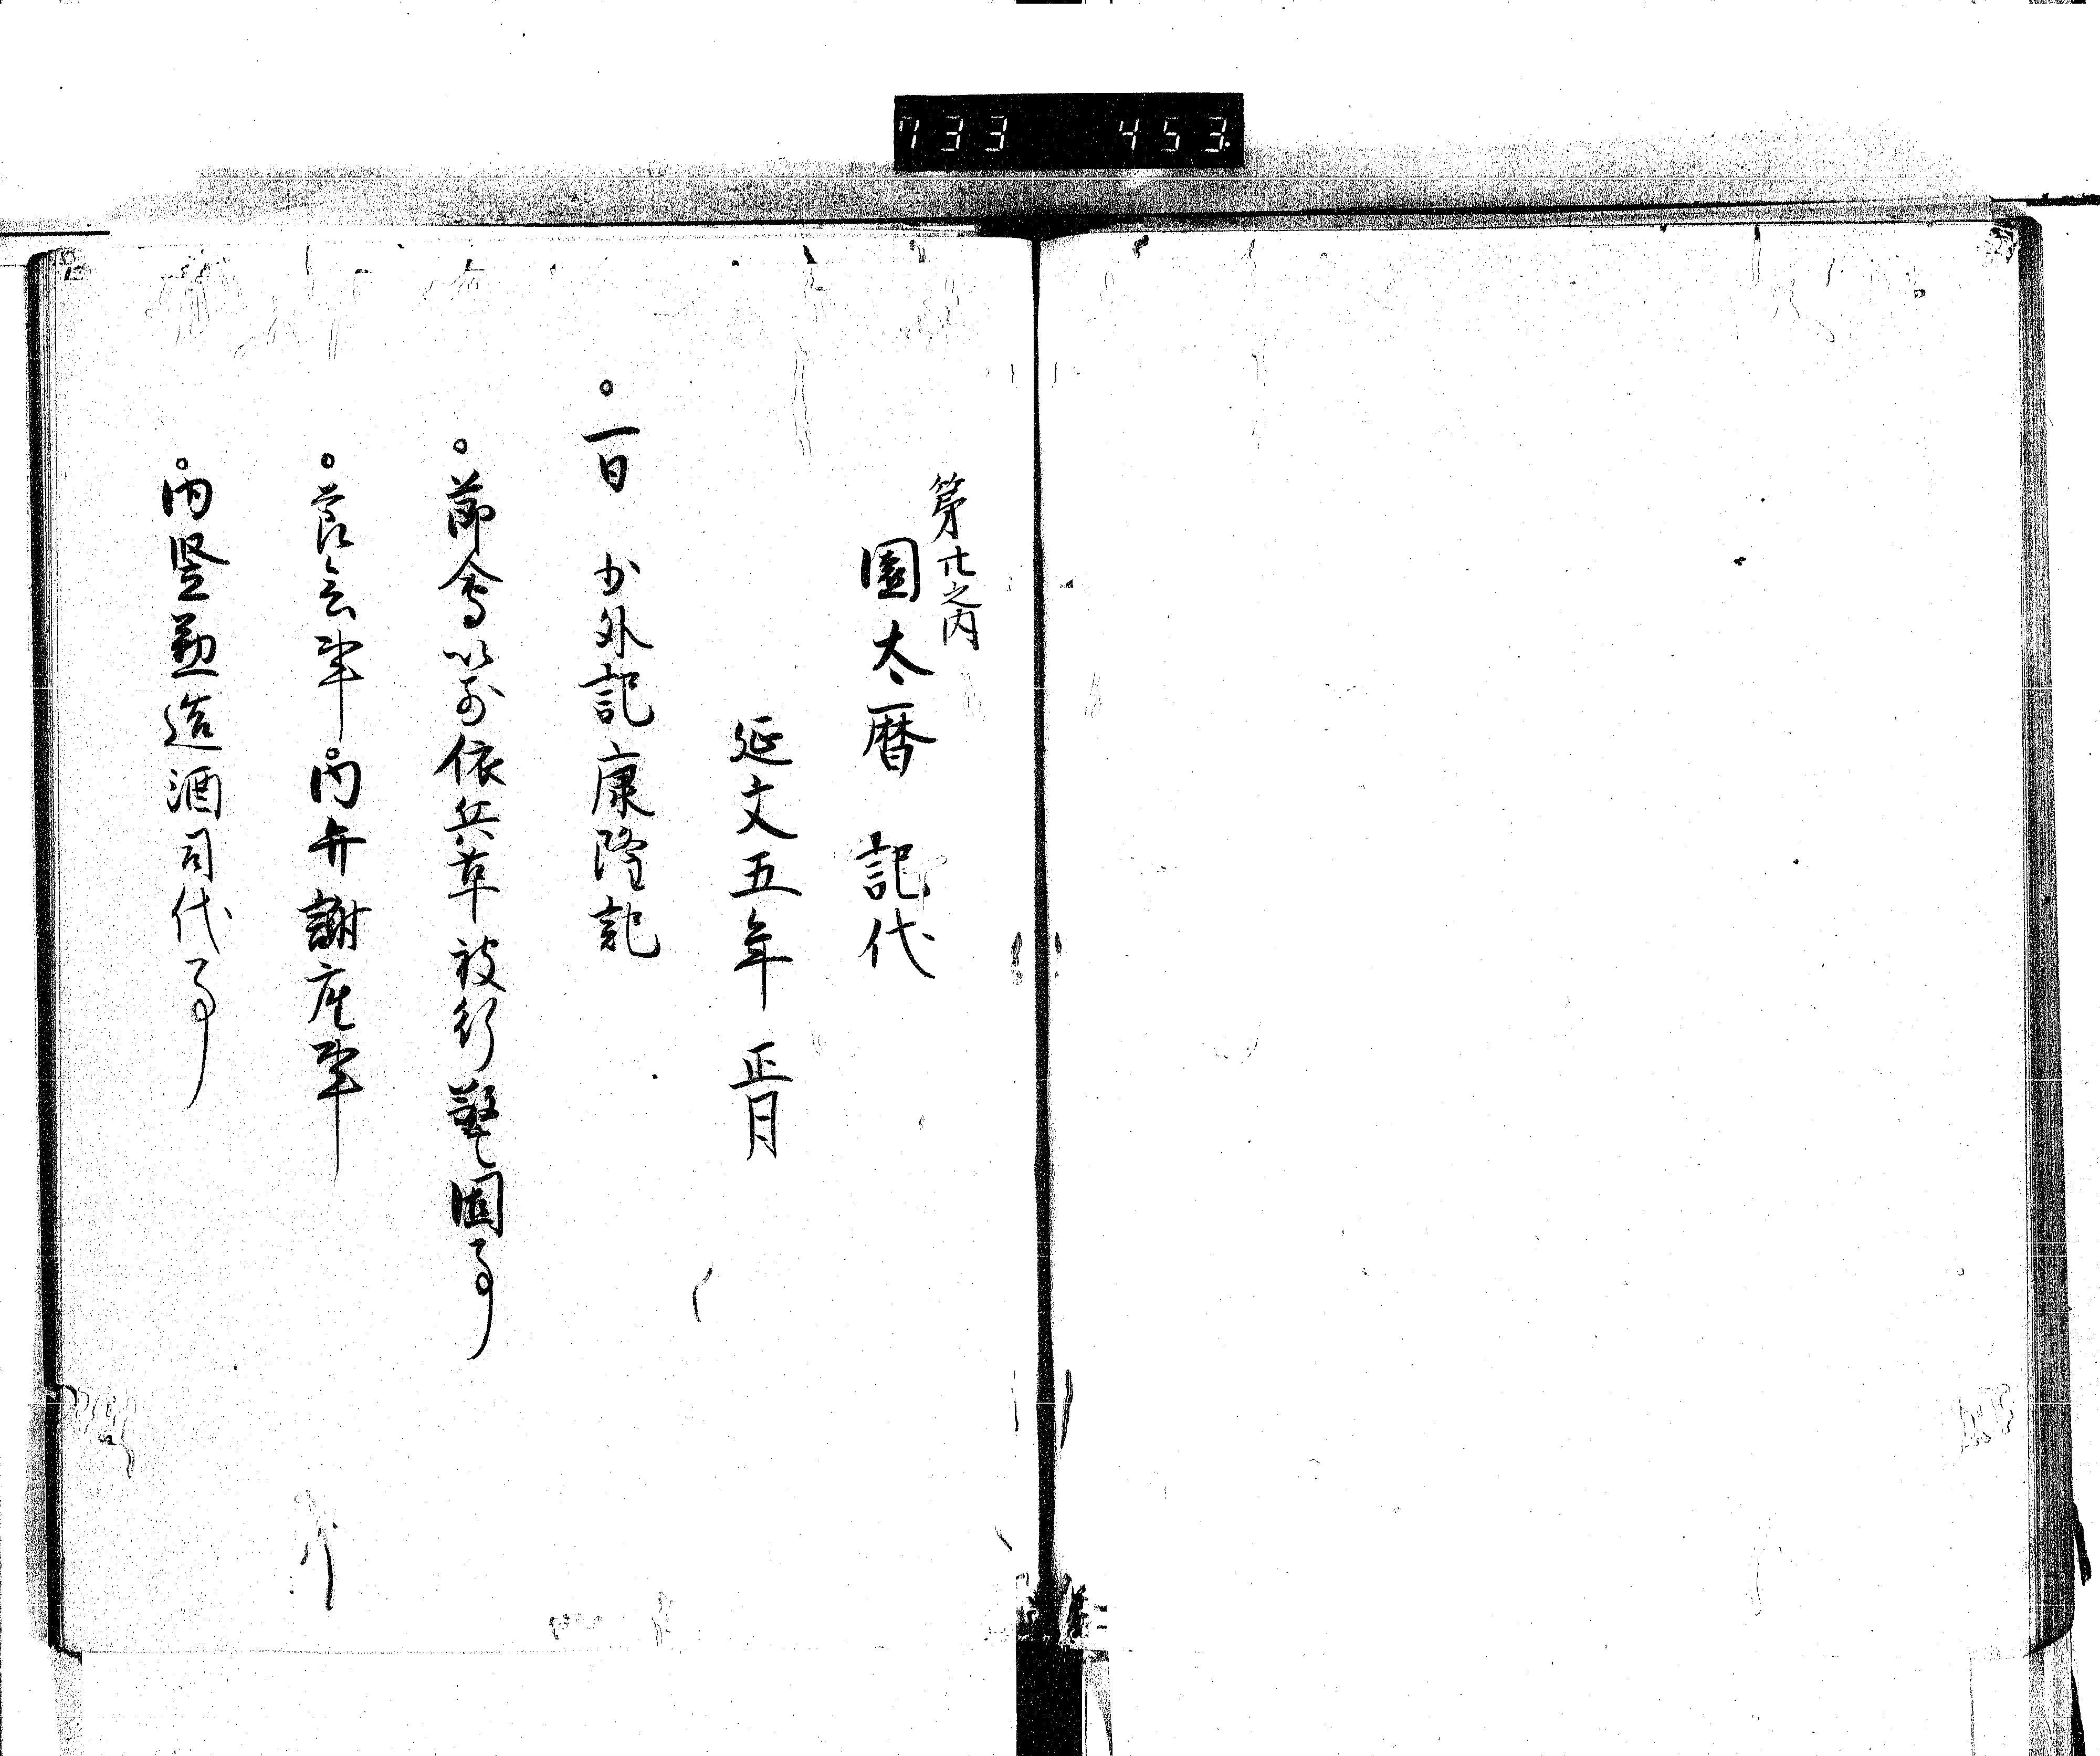 733 453
第廿之内
園太暦 記代
延文五年 正月
一日 少外記康隆記
節會以前依兵革被行警固事
内弁謝座事
内竪兼造酒司代事